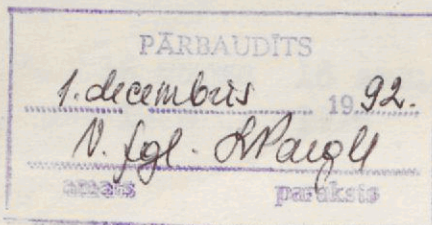 PĀRBAUDĪTS
1. decembris 1992.
V. fgl.
amats paraksts